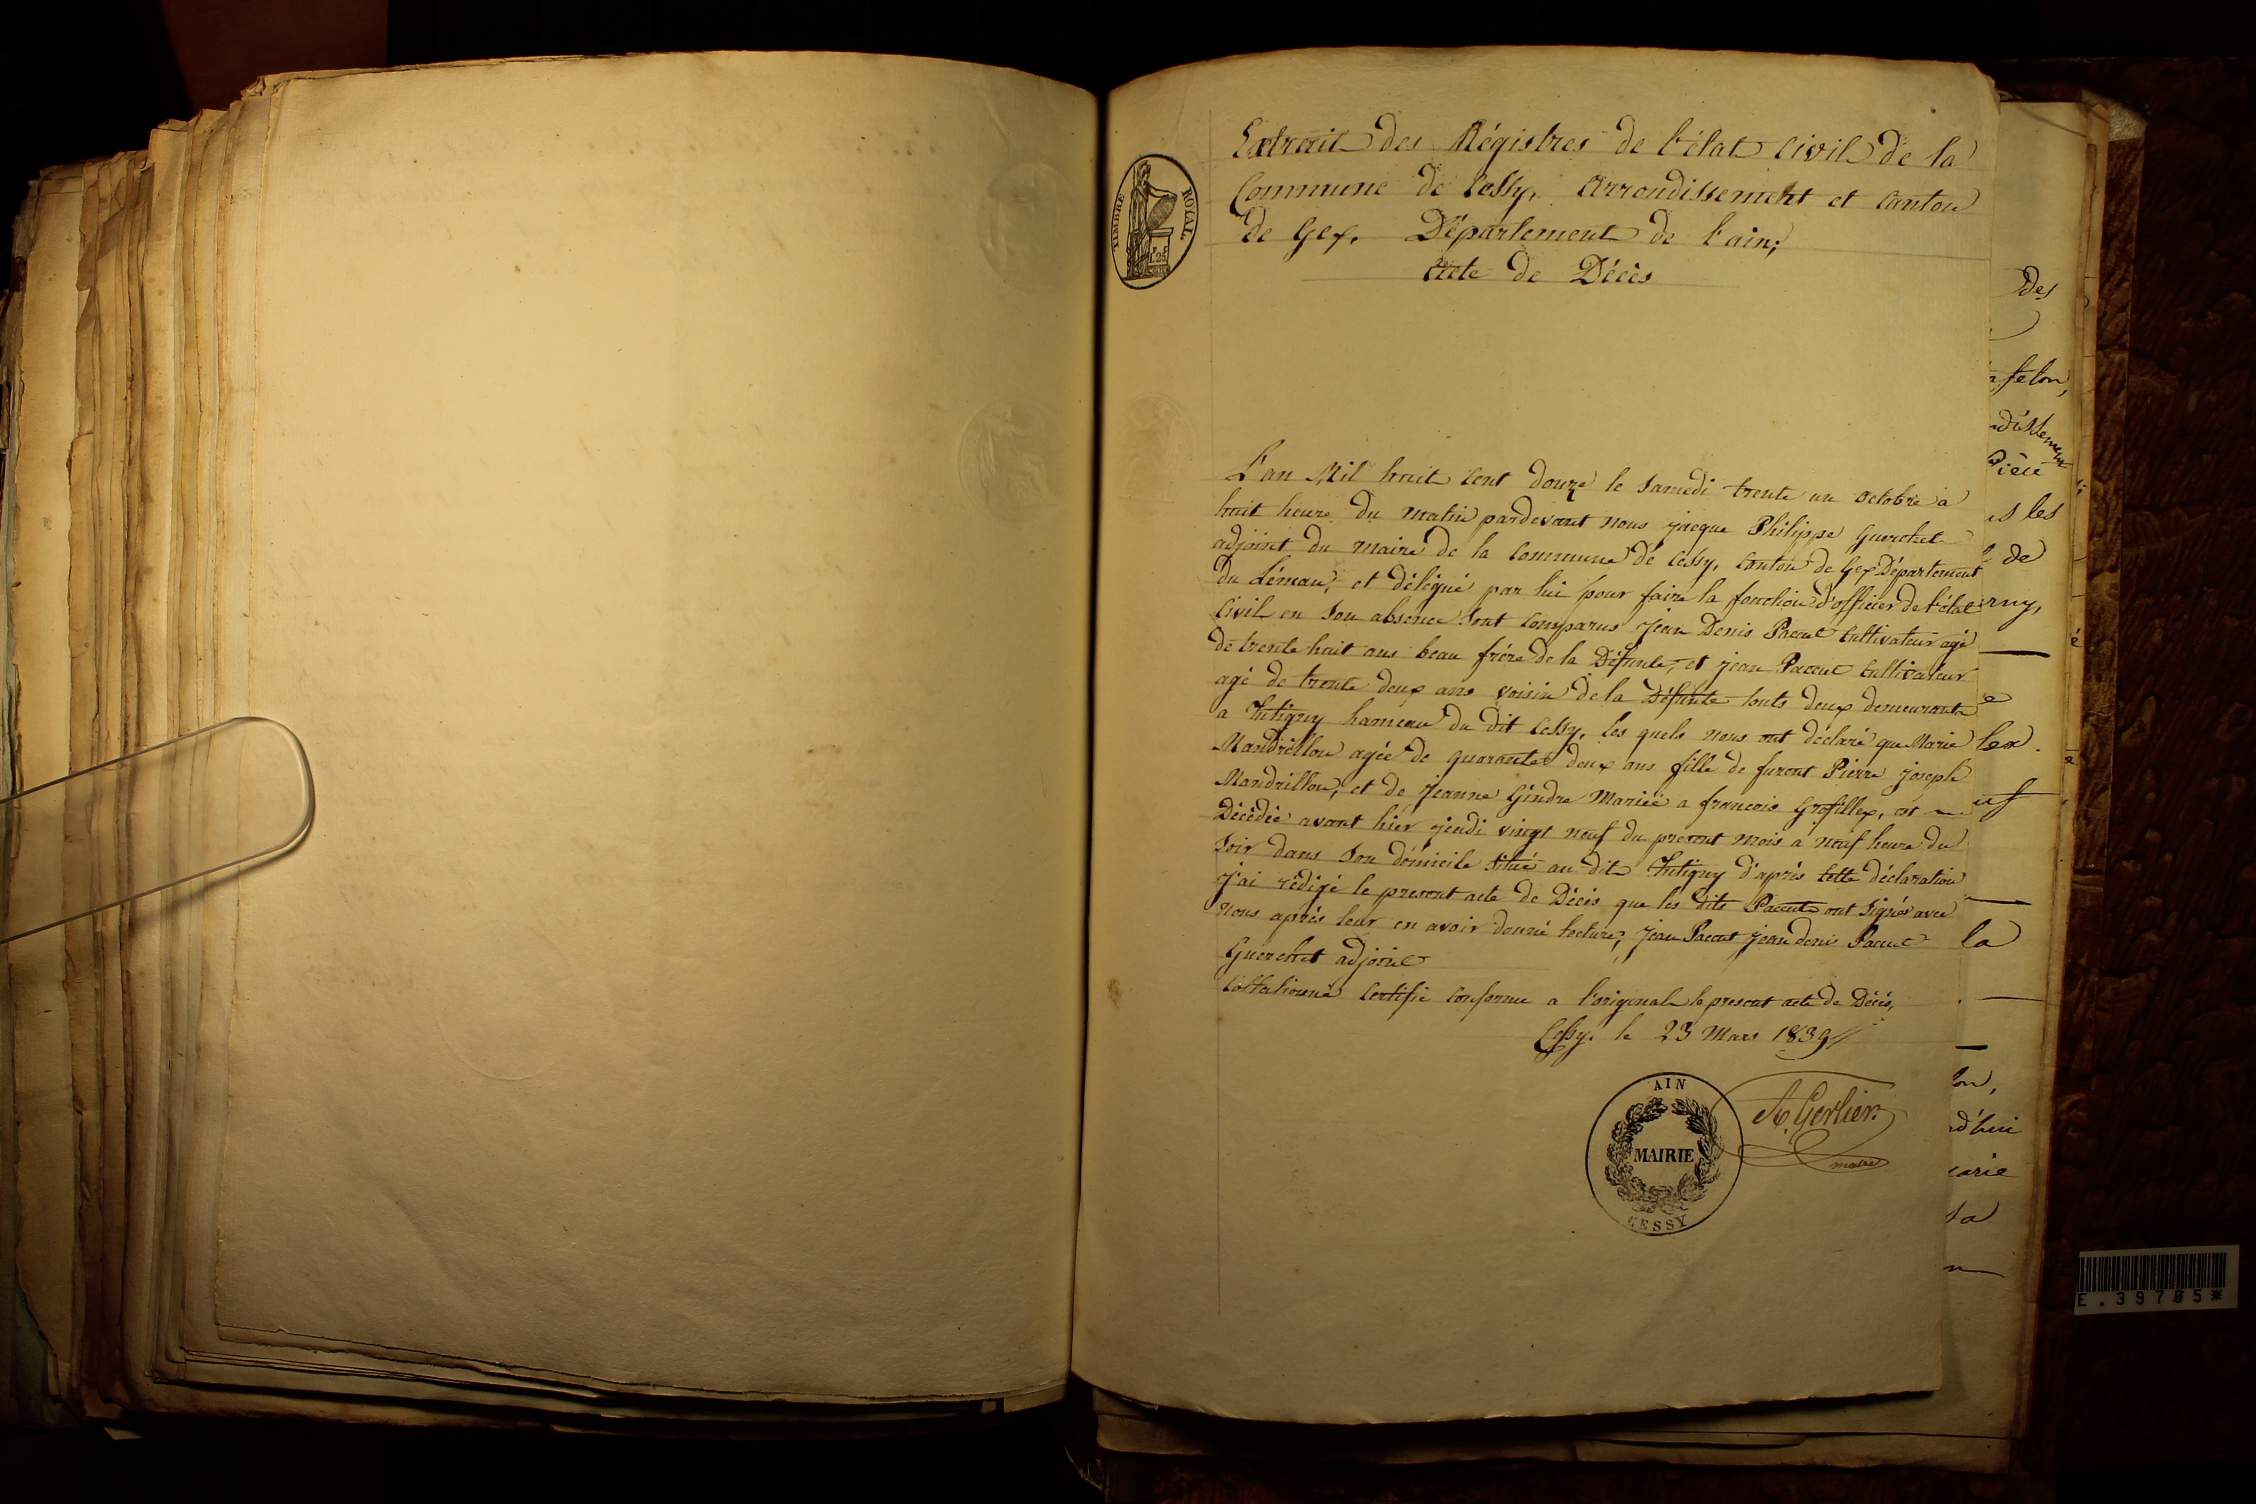 TIMBRE ROYAL
Extrait des Régistres de l'état Civil de la
Commune de Cessy, Arrondissement et Canton
de Gex, Département de l'ain;
Acte de Décès
L'an Mil huit Cent douze le Samedi trente un octobre a
huit heure du matin pardevant nous jacque Philippe Guerchet
adjoint du maire de la Commune de Cessy, Canton de Gex Département
du Léman, et délégué par lui pour faire la fonction d'officier de l'état
Civil en Son absence Sont Comparus jean Denis Pacout Cultivateur agé
de trente huit ans beau frére de la Défunte, et jean Pacout Cultivateur
agé de trente deux ans voisin de la Défunte touts deux demeurants
a Tutigny hameau du dit Cessy, les quels nous ont déclaré que Marie
Mandrillon agée de quarante deux ans fille de furent Pierre joseph
Mandrillon, et de jeanne Gindre Mariée a francois Grosfillex, est
Décédée avant hier jeudi vingt neuf du present mois a neuf heure du
Soir dans Son démicile Situé au dit Tutigny d'après Cette déclaration
j'ai rédigé le present acte de Décès que les dits Pacouts ont Signés avec
Nous après leur en avoir donné lecture, jean Pacout jean denis Pacout
Guerchet adjoint
Collationné Certifié Conforme a l'original le present acte de Décès,
Cessy le 23 Mars 1839
AIN
MAIRIE
CESSY
A. Gerlier
maire
des
felon,
les
de
la
E.39785*